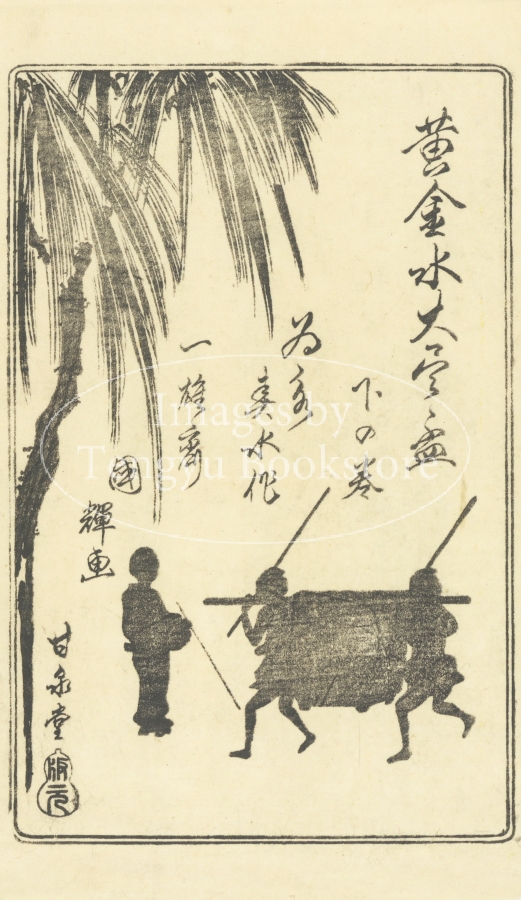 黄金水大尽盃
下の巻
為永
春水作
一雄斎
國
輝画
甘泉堂
版元
Images by
Tengyu Bookstore